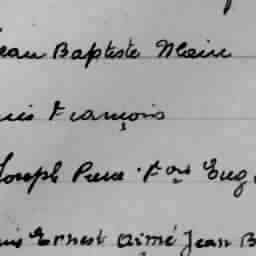 Jean Baptiste Marie
François
Joseph Pierre F.ois Eug
Ernest Aimé Jean B